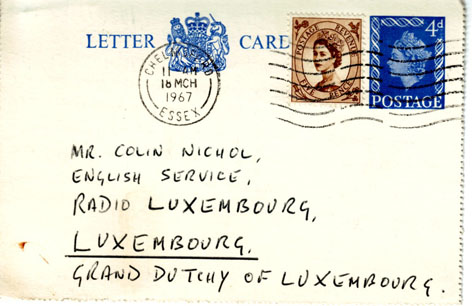 LETTER CARD
POSTAGE REVENUE
FIVE PENCE
4d
POSTAGE
CHELMSFORD
11 - AM
18 MCH
1967
ESSEX
MR. COLIN NICHOL,
ENGLISH SERVICE,
RADIO LUXEMBOURG,
LUXEMBOURG.
GRAND DUTCHY OF LUXEMBOURG.